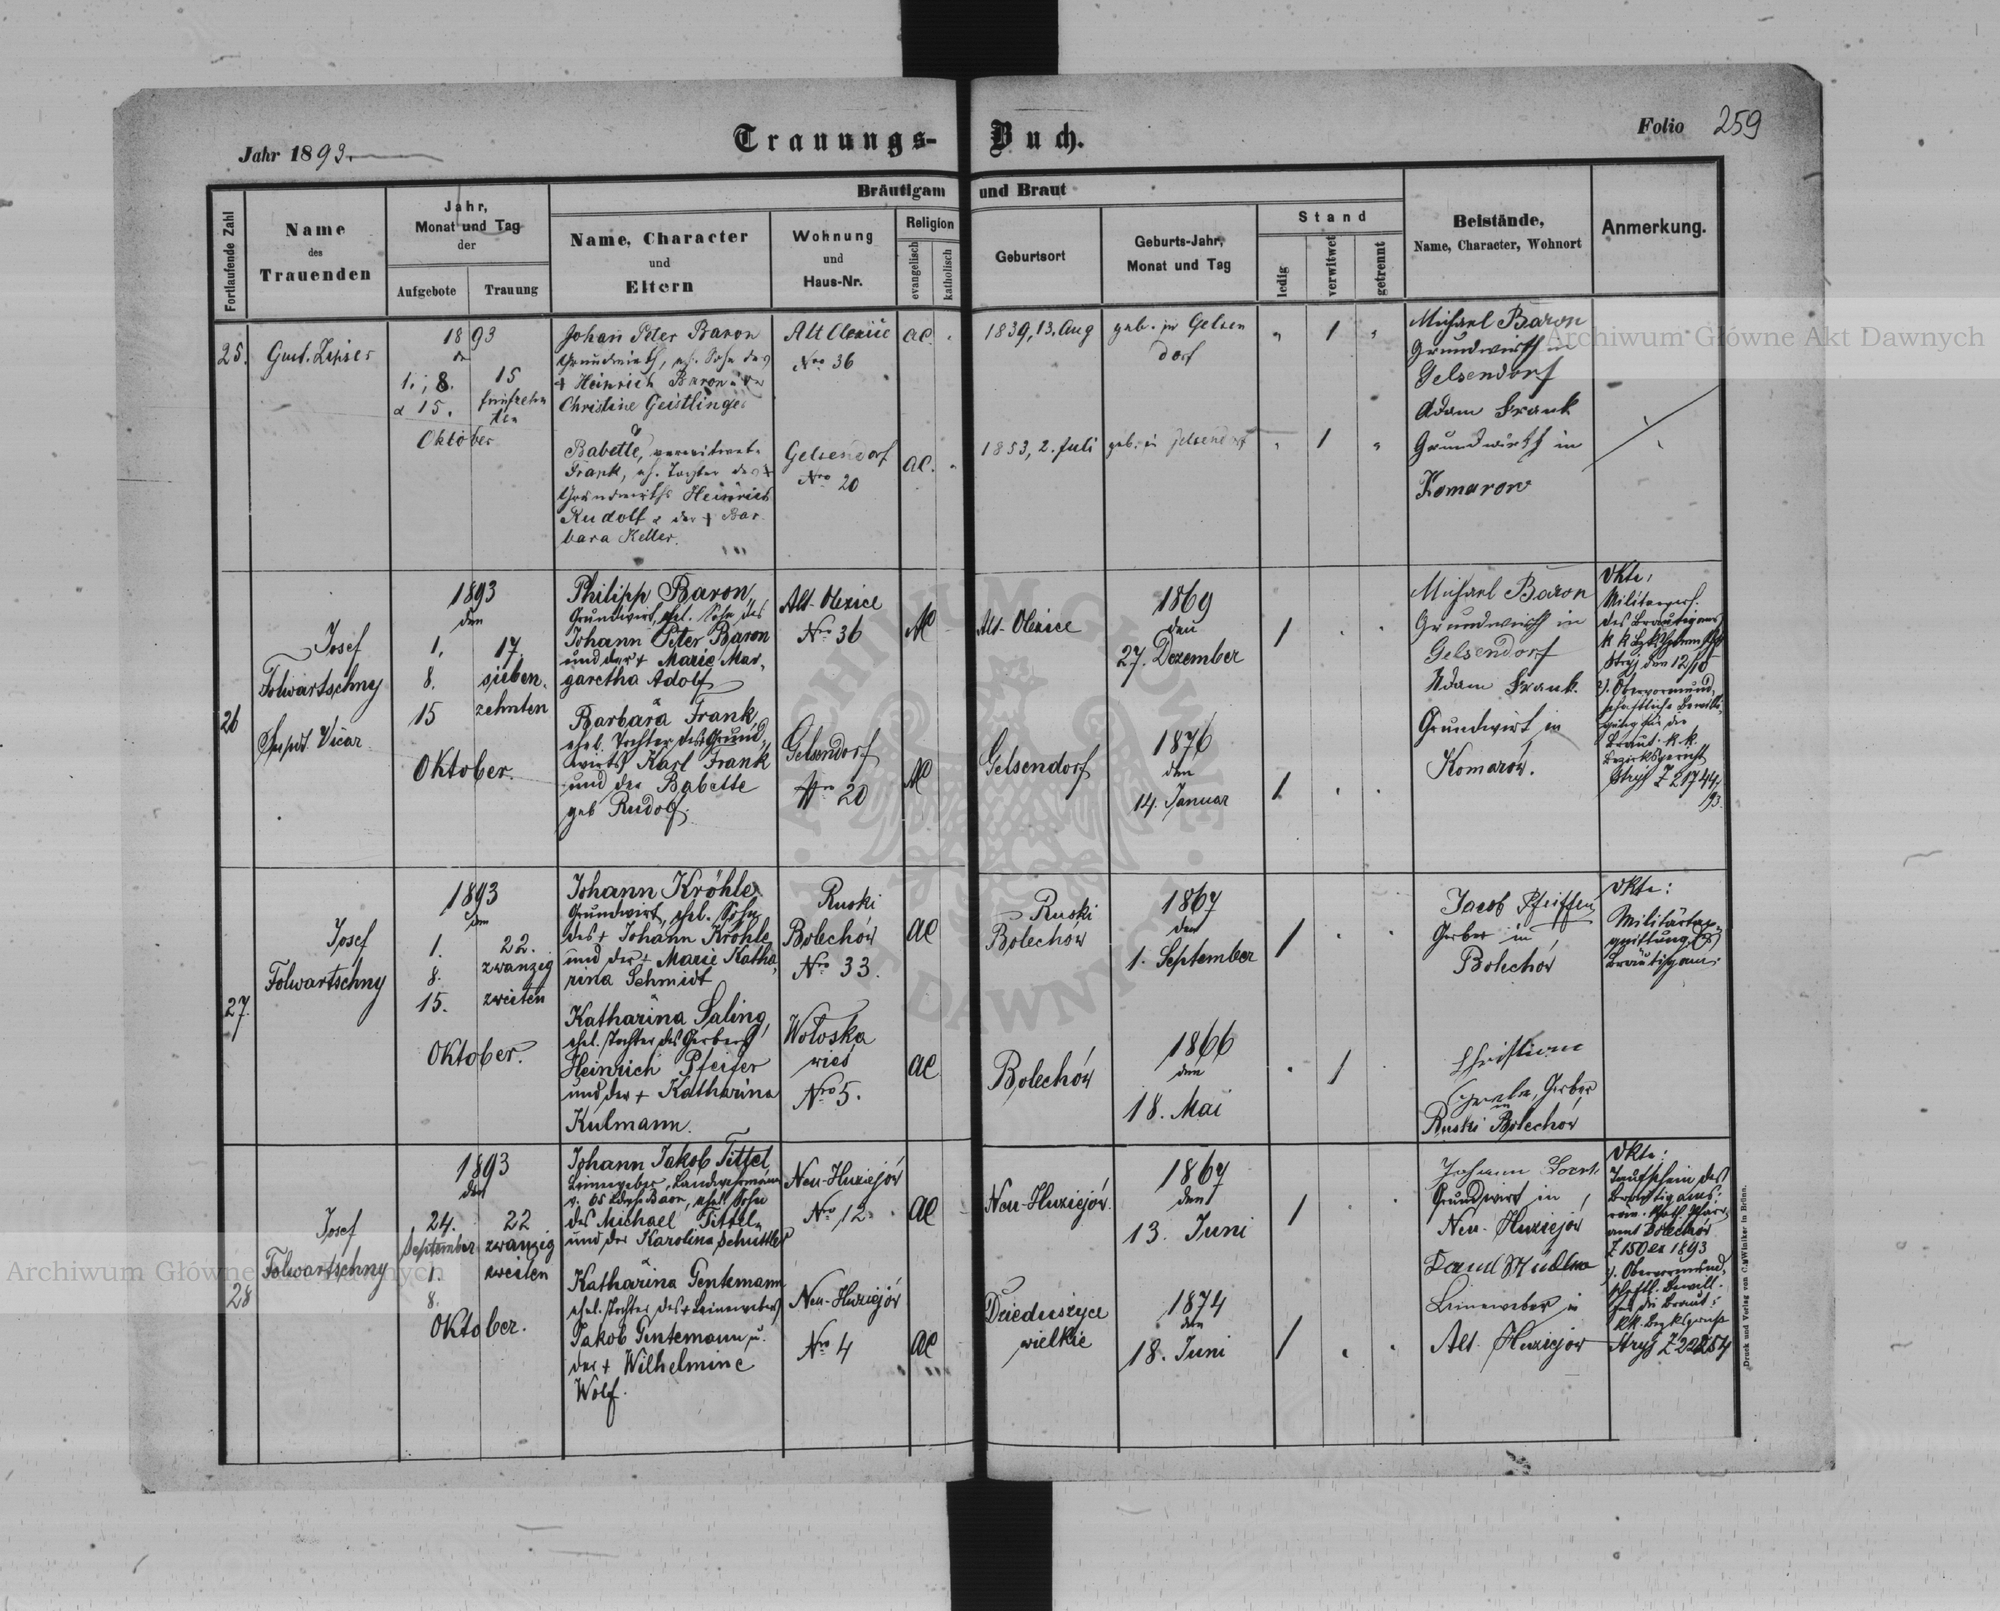 Jahr 1893.
Trauungs-Buch.
Folio 259
Fortlaufende Zahl
Name
des
Trauenden
Jahr,
Monat und Tag
der
Aufgebote
Trauung
Bräutigam und Braut
Name, Character
und
Eltern
Wohnung
und
Haus-Nr.
Religion
evangelisch
katholisch
Geburtsort
Geburts-Jahr,
Monat und Tag
Stand
ledig
verwitwet
getrennt
Beistände,
Name, Character, Wohnort
Anmerkung.
25.
Gust. Zipser
1893
1., 8.
& 15.
15
fünfzehn
ten
Oktober
Johan Peter Baron
Grundwirth, eh. Sohn des
+ Heinrich Baron
Christine Geistlinger
Alt Olexice
Nro 36
AC
1839, 13. Aug
geb. in Gelsen
dorf
1
Babette, verwitwete
Frank, eh. Tochter des +
Grundwirths Heinrich
Rudolf & der + Bar
bara Keller.
Gelsendorf
Nro 20
AC.
1853, 2. Juli
geb. in Gelsendorf
1
Michael Baron
Grundwirth in
Gelsendorf
Adam Frank
Grundwirth in
Komarow
26
Josef
Folwartschny
Vicar
1893
den
1.
8.
15
17.
sieben-
zehnten
Oktober.
Philipp Baron,
Grundwirt, ehel. Sohn des
Johann Peter Baron
und der + Marie Mar-
garetha Adolf
Alt-Olexice
Nro 36
AC
Alt-Olexice
1869
den
27. Dezember
1
Barbara Frank,
ehel. Tochter des Grund-
wirts Karl Frank
und der Babette
geb Rudolf.
Gelsendorf
Nro 20
AC
Gelsendorf
1876
den
14. Januar
1
Michael Baron
Grundwirth in
Gelsendorf
Adam Frank.
Grundwirt in
Komarów.
Akte:
des Bräutigams
Stryj den 12/10
2). Obervormund-
schaftliche Bewilli-
gung für die
Braut: k. k.
Bezirksgericht
Stryj Z 21744/
93.
27.
Josef
Folwartschny
1893
den
1.
8.
15.
22.
zwanzig
zweiten
Oktober.
Johann Kröhler
Grundwirt, ehel. Sohn
des + Johann Kröhle
und der + Marie Katha-
rina Schmidt
Ruski
Bolechów
Nro 33.
AC
Ruski
Bolechów
1867
den
1. September
1
Katharina Saling,
ehel. Tochter des Gerbers
Heinrich Pfeifer
und der + Katharina
Kulmann.
Woloska
wies
Nro 5.
AC
Bolechów
1866
den
18. Mai
1
Jacob Pfeiffer
Gerber in
Bolechów
Christian
Gerber
in
Ruski Bolechów
Akte:
Militärtax-
quittung
Bräutigam.
28
Josef
Folwartschny
1893
den
24.
September
1.
8.
22
zwanzig
zweiten
Oktober.
Johann Jakob Tittel,
Leinweber, Landwehrmann
ehel. Sohn
des Michael Tittel
und der Karolina Schüttler
Neu-Huziejów
Nro 12.
AC
Neu-Huziejów.
1867
den
13. Juni
1
Katharina Gentemann
ehel. Tochter des + Leinewebers
Jakob Gentemann, u.
der + Wilhelmine
Wolf.
Neu-Huziejów
Nro 4
AC
Dzieduszyce
wielkie
1874
den
18. Juni
1
Johann
Grundwirt in
Neu-Huziejów
Leineweber in
Alt-Huziejów
Akte:
Taufschein des
Bräutigams:
röm. Kath. Pfarr-
amt Bolechów
Z 150 ex 1893
2). Obervormund-
schaftl. Bewill.
für die Braut:
kk. Bezksgericht
Stryj Z 22257
Druck und Verlag von C. Winiker in Brünn.
Archiwum Główne Akt Dawnych
Archiwum Główne Akt Dawnych
ARCHIWUM GŁÓWNE AKT DAWNYCH